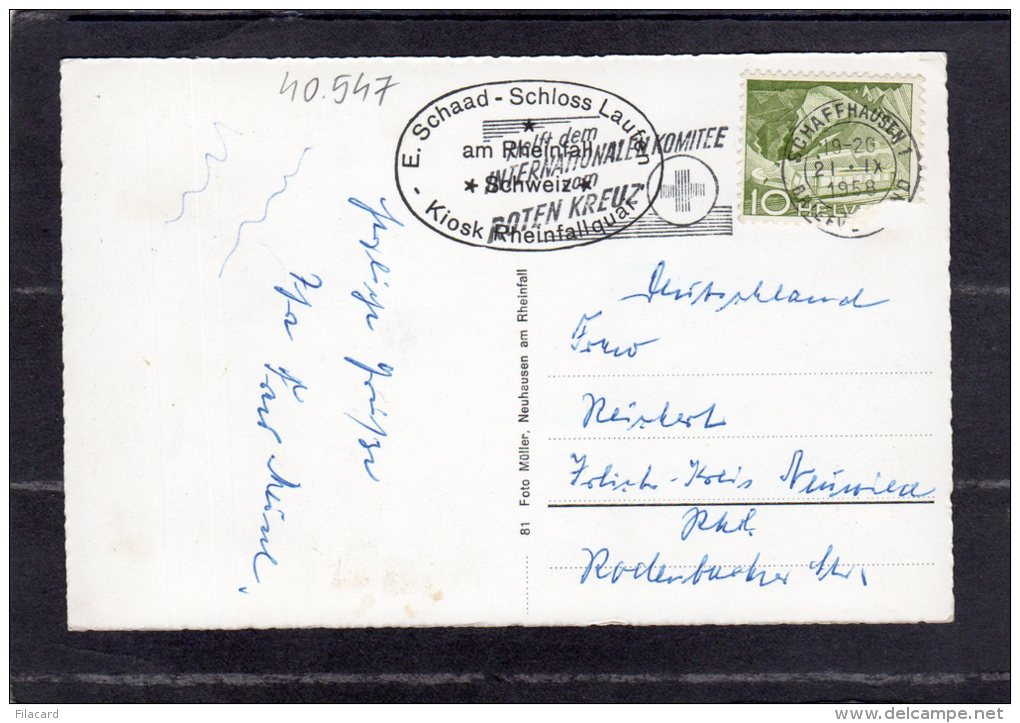 40.547
E. Schaad - Schloss Laufen
am Rheinfall
* Schweiz *
- Kiosk Rheinfallquai -
Helft dem
INTERNATIONALEN KOMITEE
vom
ROTEN KREUZ
SCHAFFHAUSEN 1
19-20
21 · IX
1958
10
HELVETIA
Herzliche Grüße
Deutschland
Frau
Reichert
Irlich-Kreis Neuwied
Rhd.
Rodenbacher Str.
81 Foto Müller, Neuhausen am Rheinfall
Filacard
www.delcampe.net